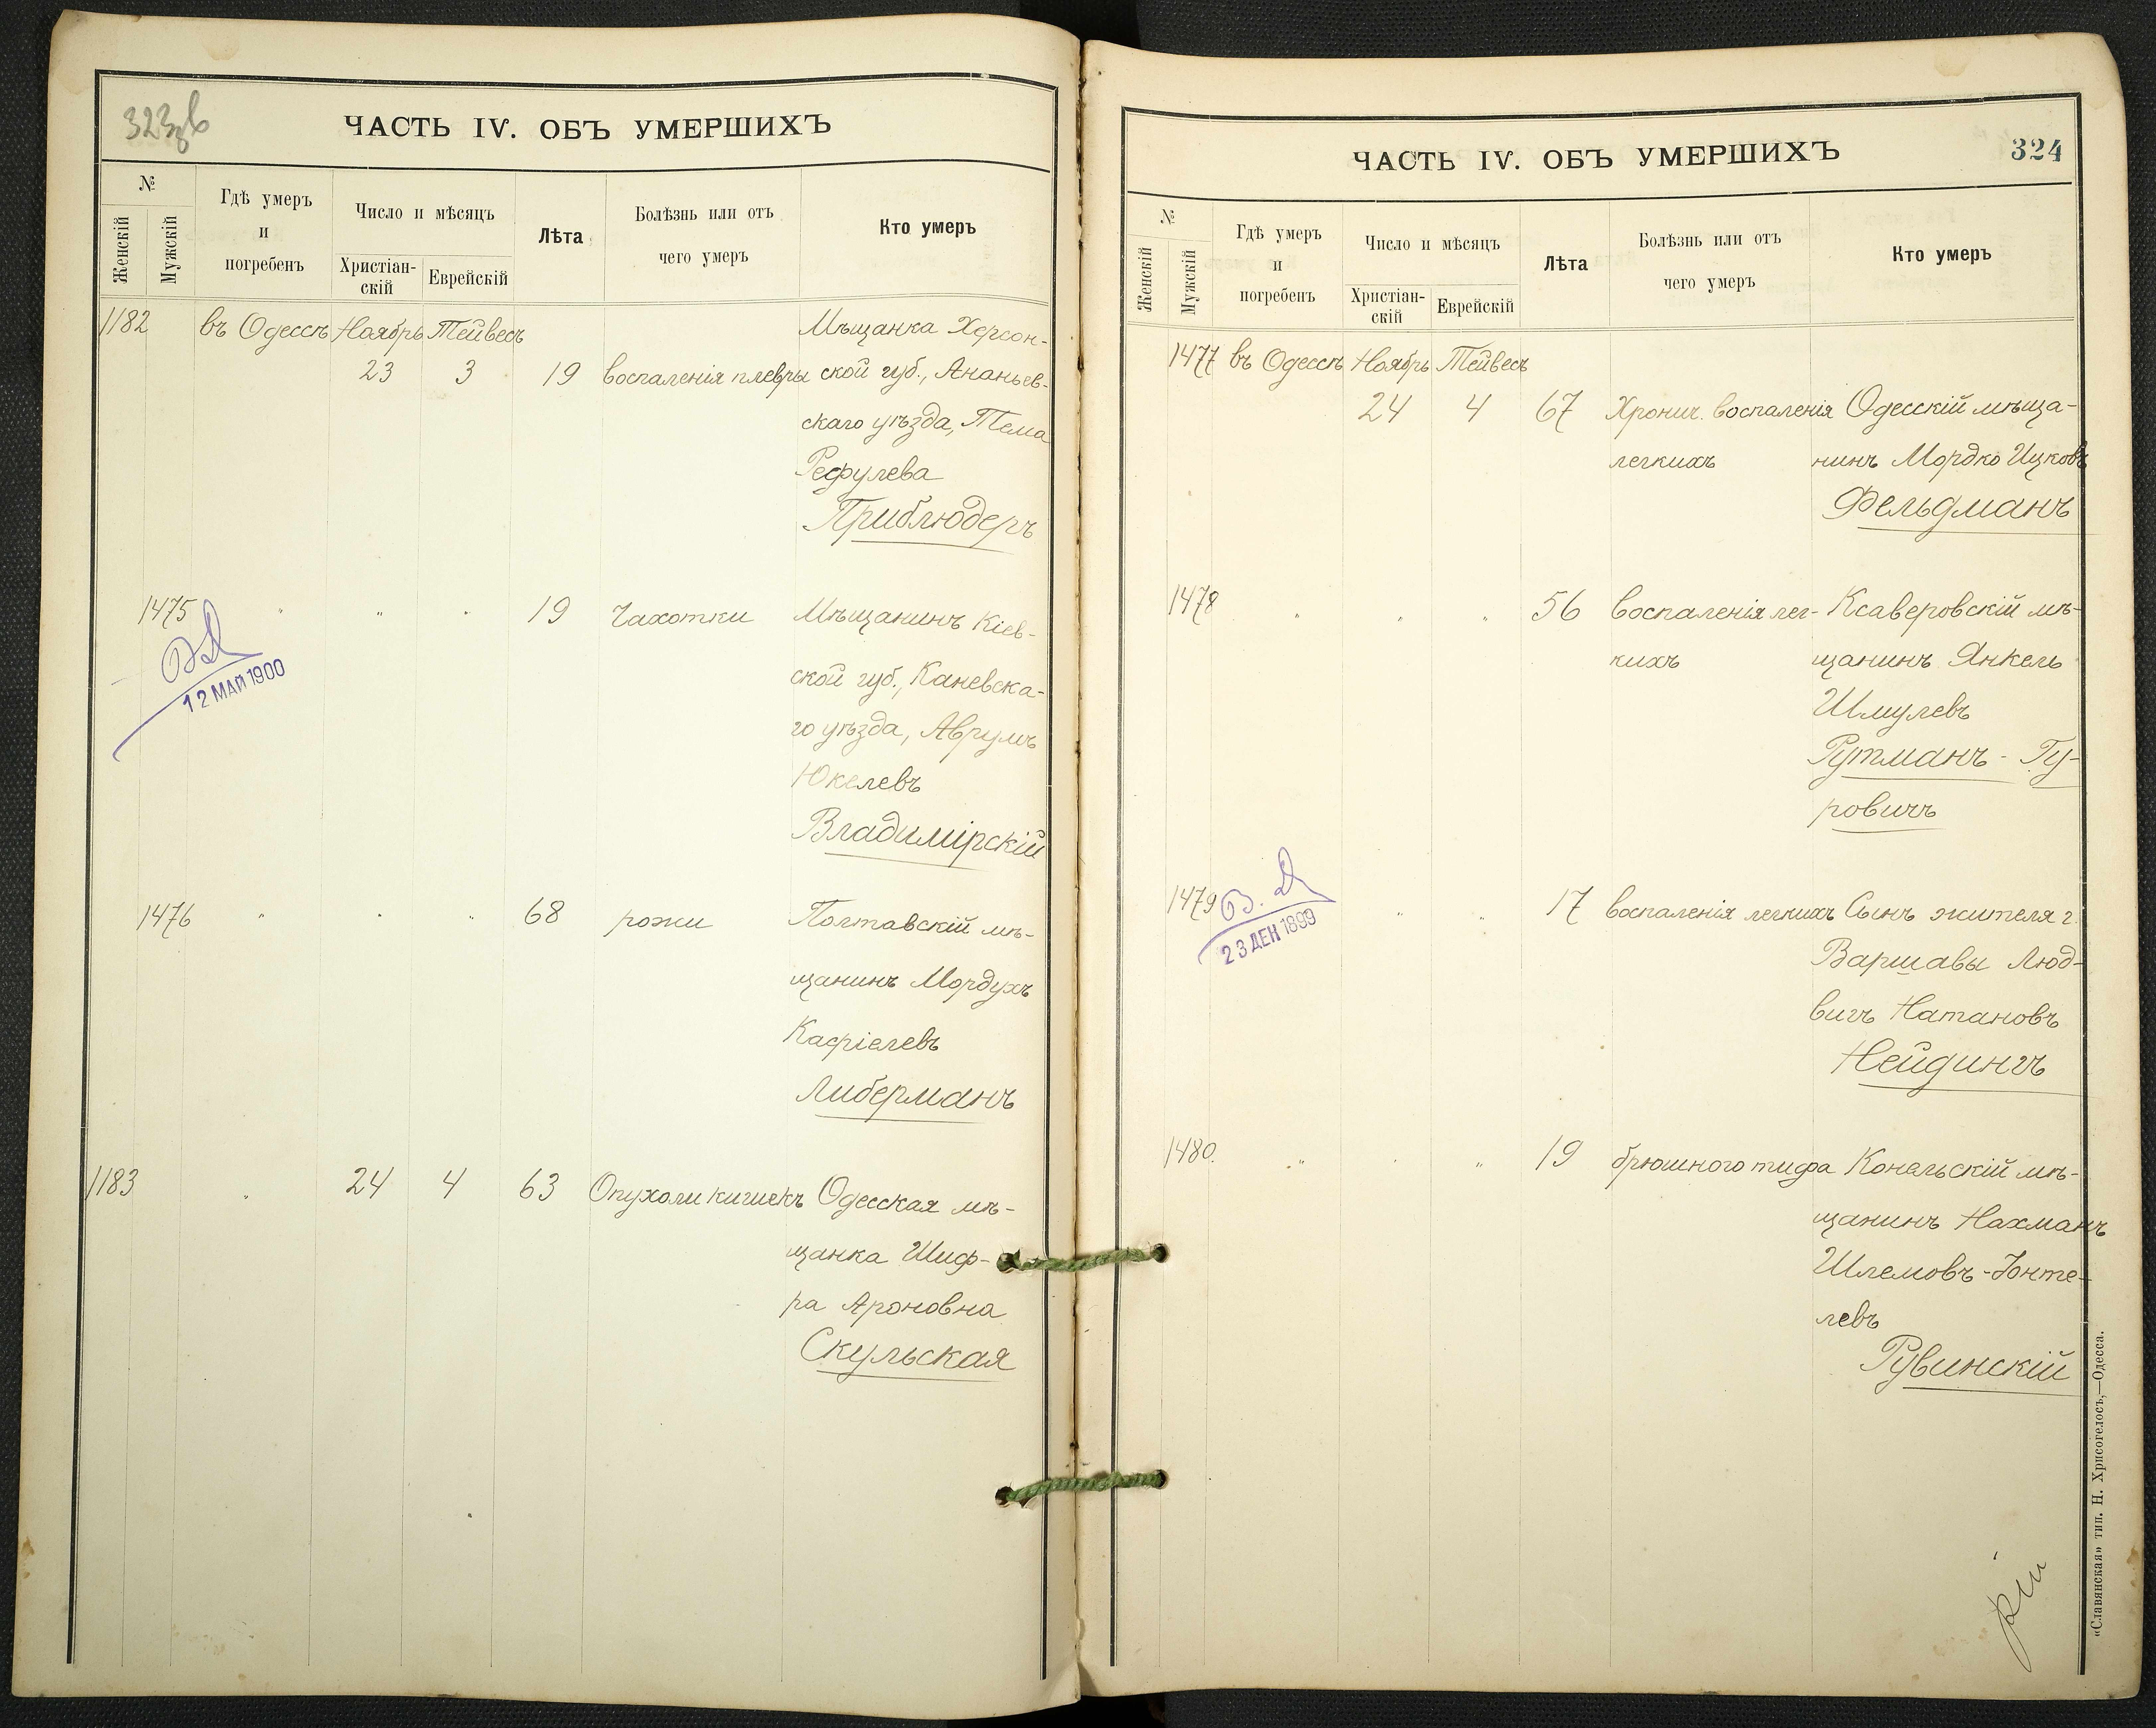 323 об
ЧАСТЬ IV. ОБЪ УМЕРШИХЪ
№
Женскій
Мужскій
Гдѣ умеръ
и
погребенъ
Число и мѣсяцъ
Христіан-
скій
Еврейскій
Лѣта
Болѣзнь или отъ
чего умеръ
Кто умеръ
1182 въ Одессѣ Ноябрь Тейвесъ Мѣщанка Херсон-
23 3 19 воспаленія плевры ской губ., Ананьев-
скаго уѣзда, Тема
Рефулева
Приблюдеръ
1475 " " " 19 Чахотки Мѣщанинъ Кіев-
ской губ., Каневска-
12 МАЙ 1900
го уѣзда, Аврумъ
Юкелевъ
Владимірскій
1476 " " " 68 рожи Полтавскій мѣ-
щанинъ Мордухъ
Кафріелевъ
Либерманъ
1183 " 24 4 63 Опухоли кишекъ Одесская мѣ-
щанка Шиф-
ра Ароновна
Скульская
ЧАСТЬ IV. ОБЪ УМЕРШИХЪ
324
№
Женскій
Мужскій
Гдѣ умеръ
и
погребенъ
Число и мѣсяцъ
Христіан-
скій
Еврейскій
Лѣта
Болѣзнь или отъ
чего умеръ
Кто умеръ
1477 въ Одессѣ Ноябрь Тейвесъ
24 4 67 Хронич. воспаленія Одесскій мѣща-
легкихъ нинъ Мордко Ицковъ
Фельдманъ
1478 " " " 56 воспаленія лег- Ксаверовскій мѣ-
кихъ щанинъ Янкель
Шмулевъ
Рутманъ - Гу-
ровичъ
1479 " " 17 воспаленія легкихъ Сынъ жителя г.
23 ДЕК 1899
Варшавы Люд-
вигъ Натановъ
Нейдингъ
1480. " " " 19 брюшного тифа Конельскій мѣ-
щанинъ Нахманъ
Шлемовъ-Іонте-
левъ
Рувинскій
«Славянская» тип. Н. Хрисогелосъ,—Одесса.